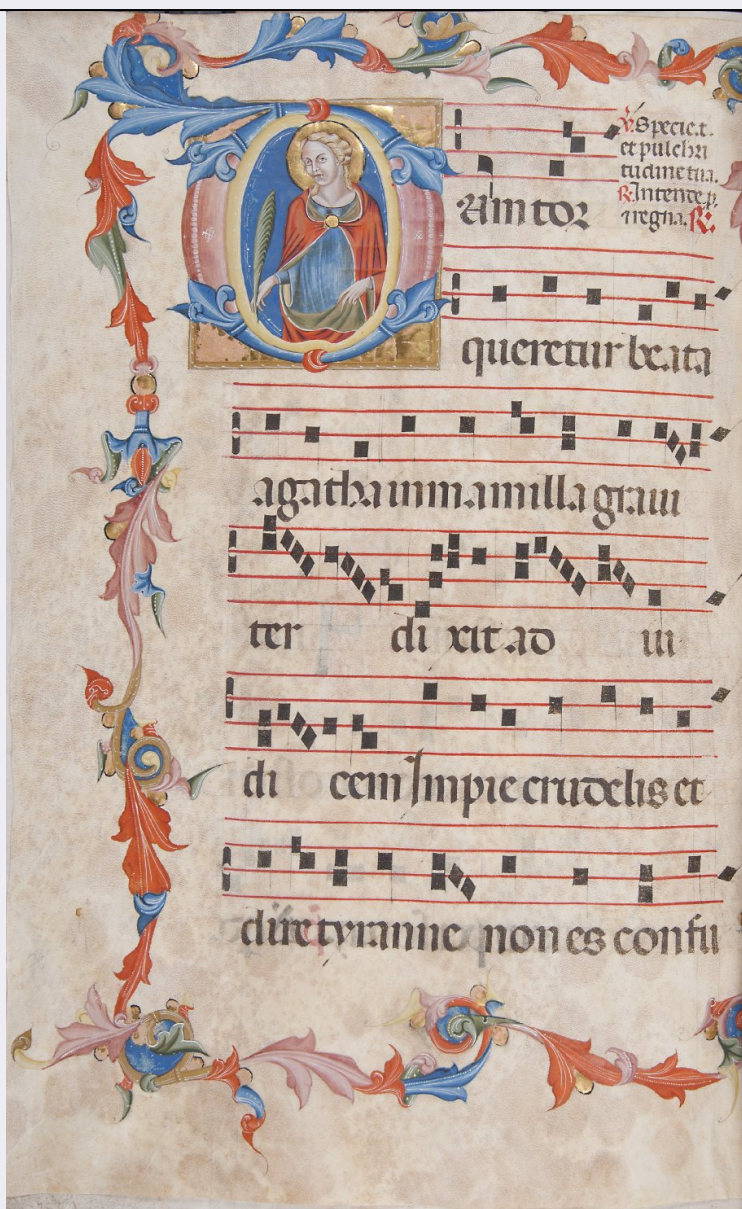 Dum tor
℣. Specie.t.
et pulchri
tudine tua.
℟. Intende.p.
⁊ regna. ℟.
queretur beata
agatha in mamilla graui
ter di xit ad iu
di cem Impie crudelis et
dire tyranne non es confu